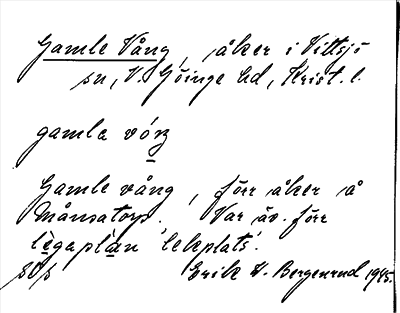 Gamle Vång, åker i Vittsjö
sn, V. Göinge hd, Krist. l.
gamla vóŋ
Gamle vång, förr åker å
Månsatorp. Var äv. förr
lègaplàn 'lekplats'.
Erik W. Bergenrud 1945.